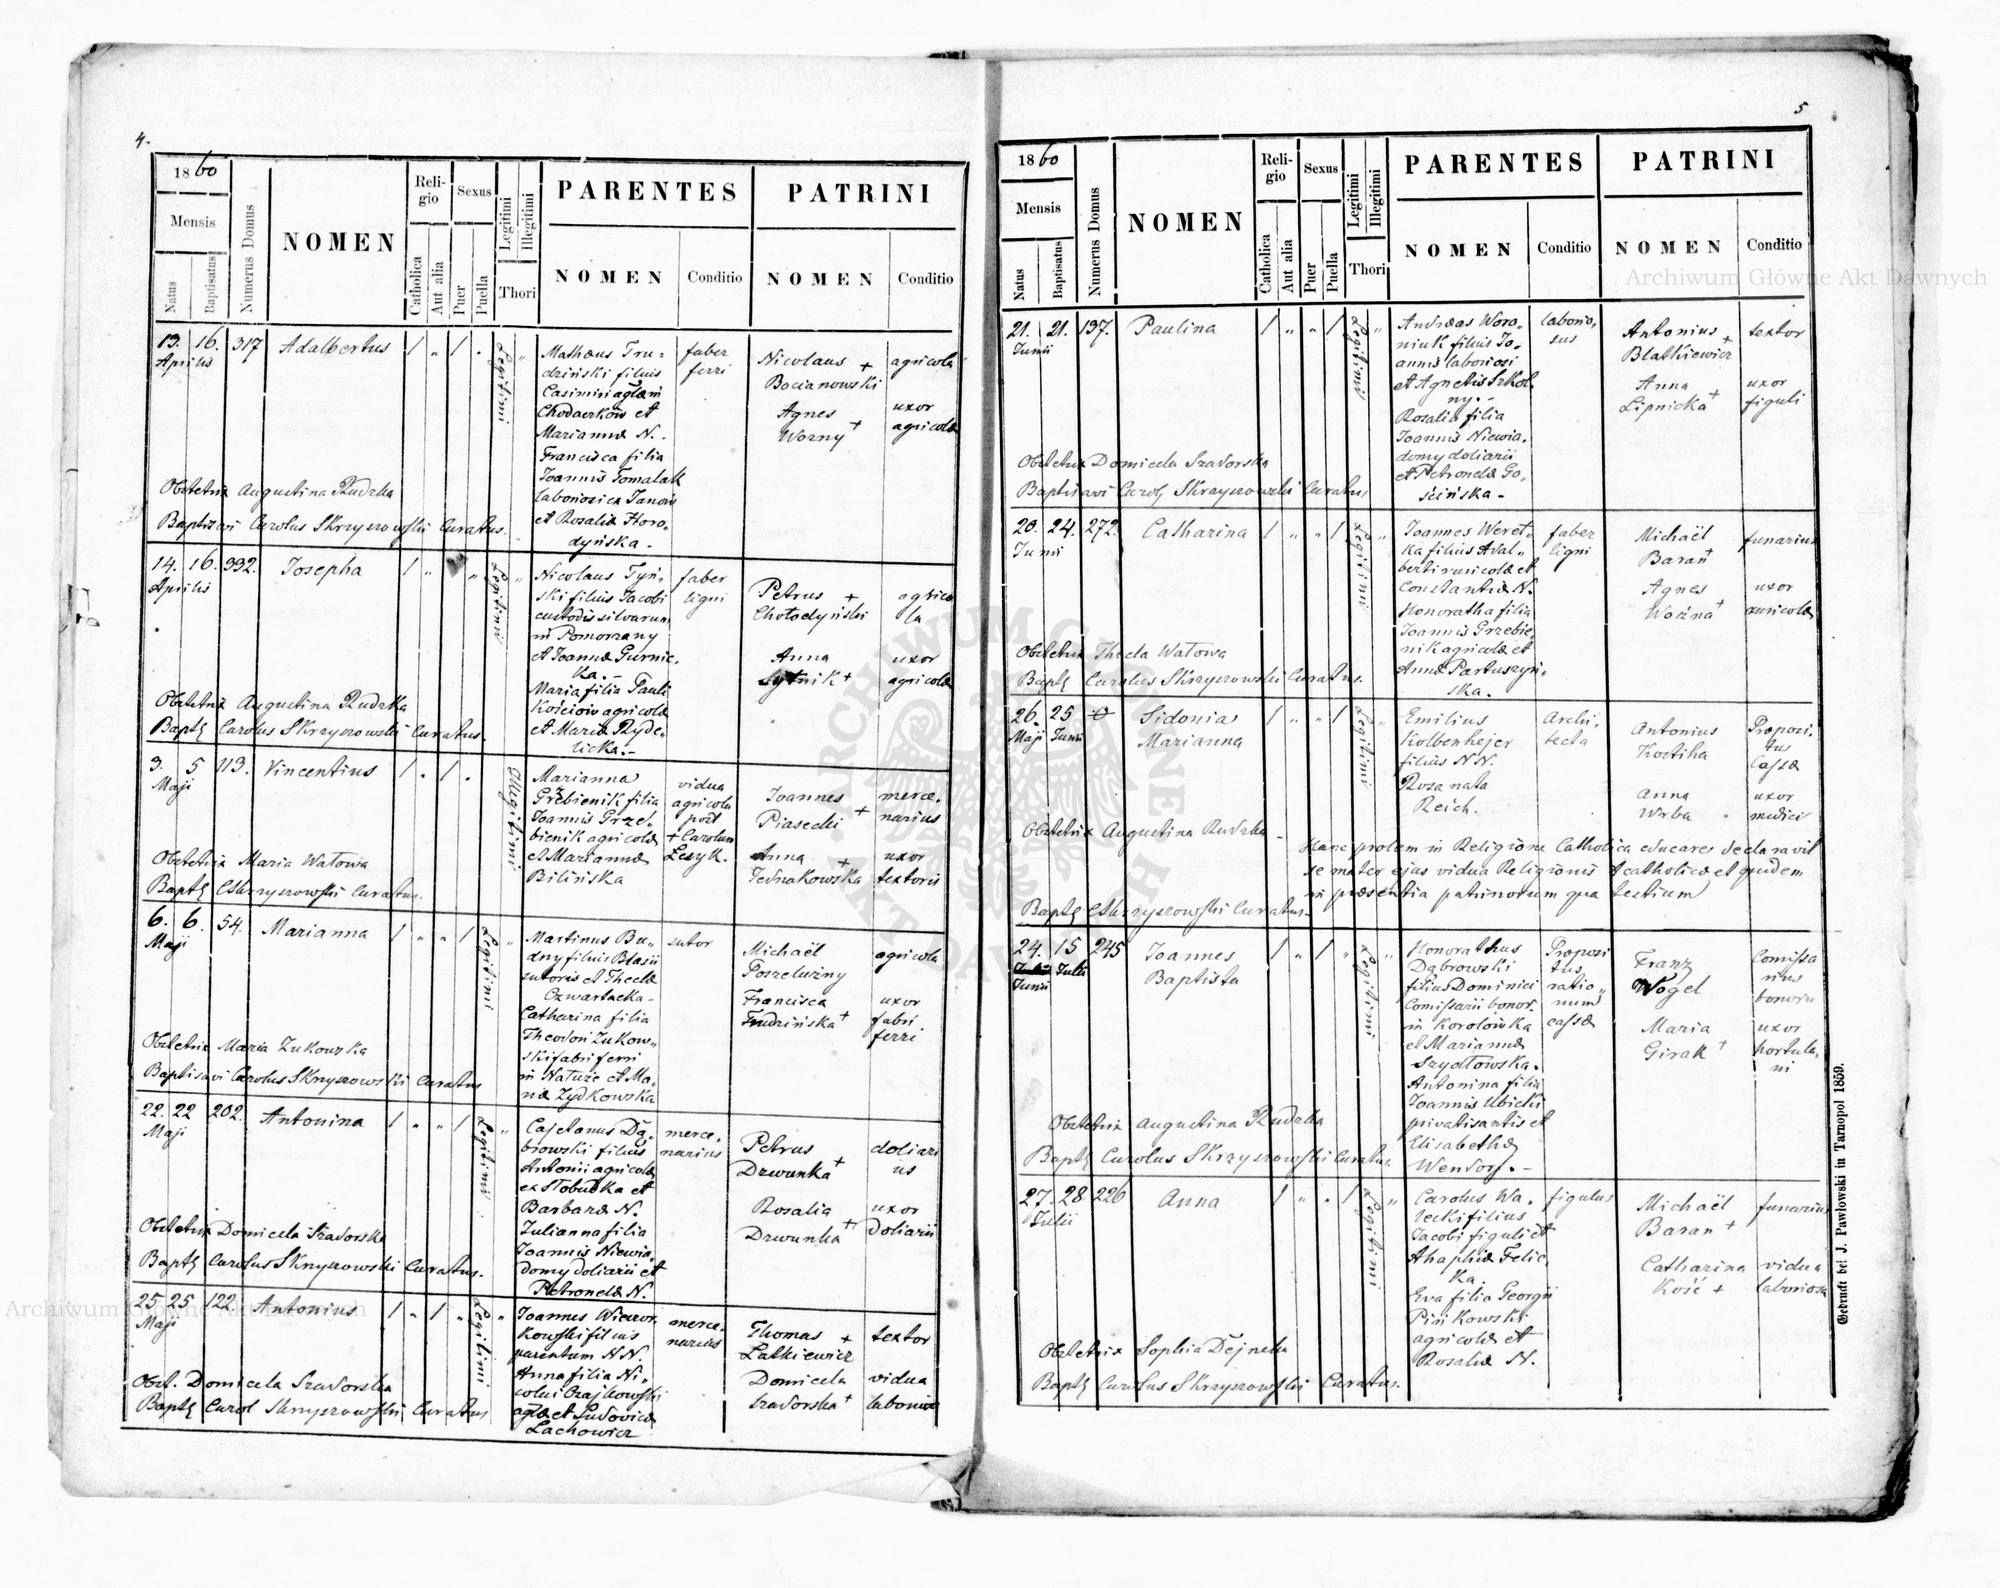 4.
1860
Mensis
Natus
Baptisatus
Numerus Domus
NOMEN
Reli-
gio
Catholica
Aut alia
Sexus
Puer
Puella
Legitimi
Illegitimi
Thori
PARENTES
NOMEN
Conditio
PATRINI
NOMEN
Conditio
13. 16. 317 Adalbertus 1 „ 1 „
Aprilis
Legitimi
Matheus Tru-
dziński filius
Casimiri
et
Mariannæ N.
Francisca filia
Joannis Tomalak
laboriosi
et Rosaliæ Horo-
dyńska -
faber
ferri
Nicolaus +
Bocianowski
Agnes
Worny +
agricola
uxor
agricolæ
Obstetrix Augustina Rudzka
Baptisavi Carolus Skrzyszowski Curatus.
14. 16. 392. Josepha 1 „
Aprilis
Legitimi
Nicolaus Tyń-
ski filius Jacobi
custodis silvarum
in Pomorzany
et Joannæ Gurnic-
ka. -
Maria filia Pauli
Kościow agricolæ
et Maria Ryde-
licka. -
faber
ligni
Petrus +
Chołodyński
Anna
Sytnik +
agrico
la
uxor
agricolæ
Obstetrix Augustina Rudzka
Bapt Carolus Skrzyszowski Curatus.
3. 5 113. Vincentius 1 „ 1 „
Maji
Illegitimi
Marianna
Przebienik filia
Joannis Prze-
bienik agricolæ
et Mariannæ
Bilińska
vidua
agricola
post
+ Carolum
Lesyk.
Joannes
Piasecki +
Anna +
Jednakowska
merce-
narius
uxor
textoris
Obstetrix Maria Watowa
Bapt CSkrzyszowski Curatus.
6. 6. 54. Marianna 1 „ „ 1
Maji
Legitimi
Martinus Bu-
dny filius Blasii
sutoris et Theclæ
Czwartacka -
Catharina filia
Theodori Zukow-
ski fabri ferri
in Natuże et Ma-
riæ Zydkowska
sutor
Michaël
Poszeluzny
Francisca
Trudzińska +
agricola
uxor
fabri
ferri
Obstetrix Maria Zukowska
Baptisavi Carolus Skrzyszowski Curatus
22. 22 202. Antonina 1 „ „ 1
Maji
Legitimi
Cajetanus Dą-
browski filius
Antonii agricolæ
ex Słobudka et
Barbaræ N.
Julianna filia
Joannis Niewia-
domy doliarii et
Petronelæ N.
merce-
narius
Petrus
Dzwunka +
Rosalia
Dzwunka +
doliari
us
uxor
doliarii
Obstetrix Domicela Szadorska
Bapt Carolus Skrzyszowski Curatus.
25 25 122. Antonius 1 „ 1 „
Maji
Legitimi
Joannes Wieczor-
kowski filius
parentum NN
Anna filia Ni-
colai Czajkowski
et Ludovicæ
Lachowicz
merce-
narius
Thomas +
Latkiewicz
Domicela
Szadorska +
textor
vidua
Obst. Domicela Szadorska
Bapt Carol Skrzyszowski Curatus
5
1860
Mensis
Natus
Baptisatus
Numerus Domus
NOMEN
Reli-
gio
Catholica
Aut alia
Sexus
Puer
Puella
Legitimi
Illegitimi
Thori
PARENTES
NOMEN
Conditio
PATRINI
NOMEN
Conditio
21. 21. 137. Paulina 1 „ „ 1
Junii
Legitimi
Andreas Woro-
niuk filius Jo-
annis laboriosi
et Agnetis Szkol-
ny. -
Rosalia filia
Joannis Niewia-
domy doliarii
et Petronelæ Go-
ścińska -
laborio-
sus
Antonius +
Blatkiewicz
Anna
Lipnicka +
textor
uxor
figuli
Obstetrix Domicela Szadorska
Baptisavi Carol Skrzyszowski Curatus
20. 24. 272. Catharina 1 „ „ 1
Junii
Legitimi
Joannes Weret-
ka filius Adal-
berti ruricolæ et
Constantiæ N.
Honoratha filia
Joannis Przebie-
nik agricolæ et
Annæ Partuszyń-
ska.
faber
ligni
Michaël
Baran +
Agnes
Woźna +
funarius
uxor
ruricolæ
Obstetrix Thecla Watowa
Bapt Carolus Skrzyszowski Curatus.
26. 25 Sidonia 1 „ „ 1
Maji Junii Marianna
Legitimi
Emilius
Kolbenhejer
filius NN.
Rosa nata
Reich.
Archi-
tecta
Antonius
Kostiha
Anna
Wrba
Proposi-
tus
Cassæ
uxor
medici
Obstetrix Augustina Rudzka -
Hanc prolem in Religione Catholica educares declaravit
se mater ejus vidua Religionis Acatholicæ et quidem
in præsentia patrinorum qua testium
Bapt CSkrzyszowski Curatus.
24. 15 245 Joannes 1 „ 1 „
Junii Julii Baptista
Legitimi
Honorathus
Dąbrowski
filius Dominici
Comissarii bonor.
in Korolówka
et Mariannæ
Szydłowska.
Antonina filia
Joannis Ubicki
privatisantis et
Elisabethæ
Wendorf. -
Proposi
tus
ratio-
num
cassæ
Franz
Wogel
Maria
Girak +
Comissa
rius
bonoru
uxor
hortula-
ni
Obstetrix Augustina Rudzka
Bapt Carolus Skrzyszowski Curatus.
27. 28. 226 Anna 1 „ „ 1
Julii
Legitimi
Carolus Wa-
lecki filius
Jacobi figuli et
Ahaphiæ Felic-
ka.
Eva filia Georgii
Pińkowski
agricolæ et
Rosaliæ N.
figulus
Michaël
Baran +
Catharina
Kość +
funarius
vidua
laboriosa
Obstetrix Sophia Dejneka
Bapt Carolus Skrzyszowski Curatus.
Gedruckt bei J. Pawłowski in Tarnopol 1859.
Archiwum Główne Akt Dawnych
Archiwum Główne Akt Dawnych
ARCHIWUM GŁÓWNE AKT DAWNYCH